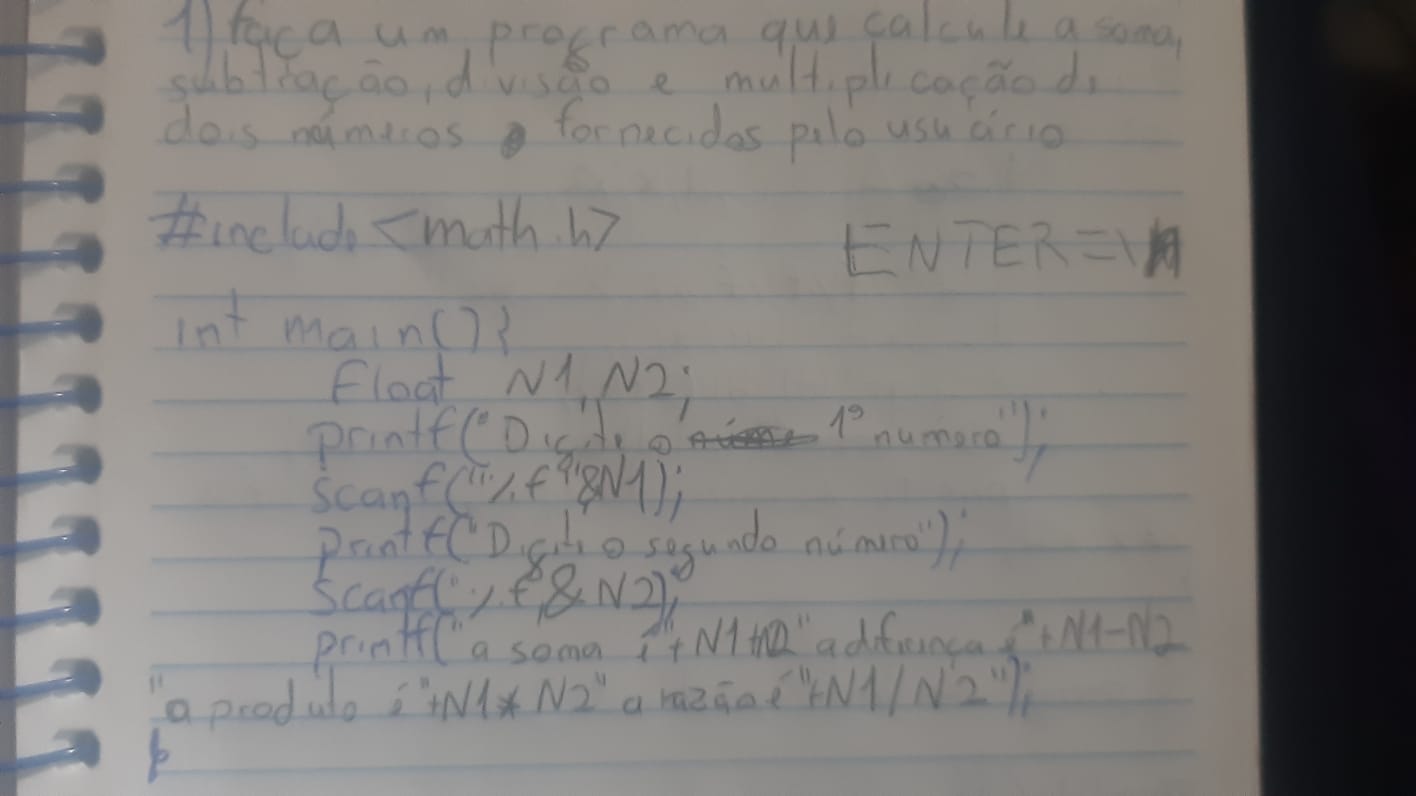 1) faça um programa que calcule a soma,
subtração, divisão e multiplicação de
dois números fornecidos pelo usuário
#include <math.h>
ENTER=\n
int main(){
float N1, N2;
printf("Digite o 1º numero");
scanf("%f",&N1);
printf("Digite o segundo número");
scanf("%f",&N2);
printf("a soma é"+N1+N2"a difrença é"+N1-N2
"a produto é"+N1*N2"a razão é"+N1/N2");